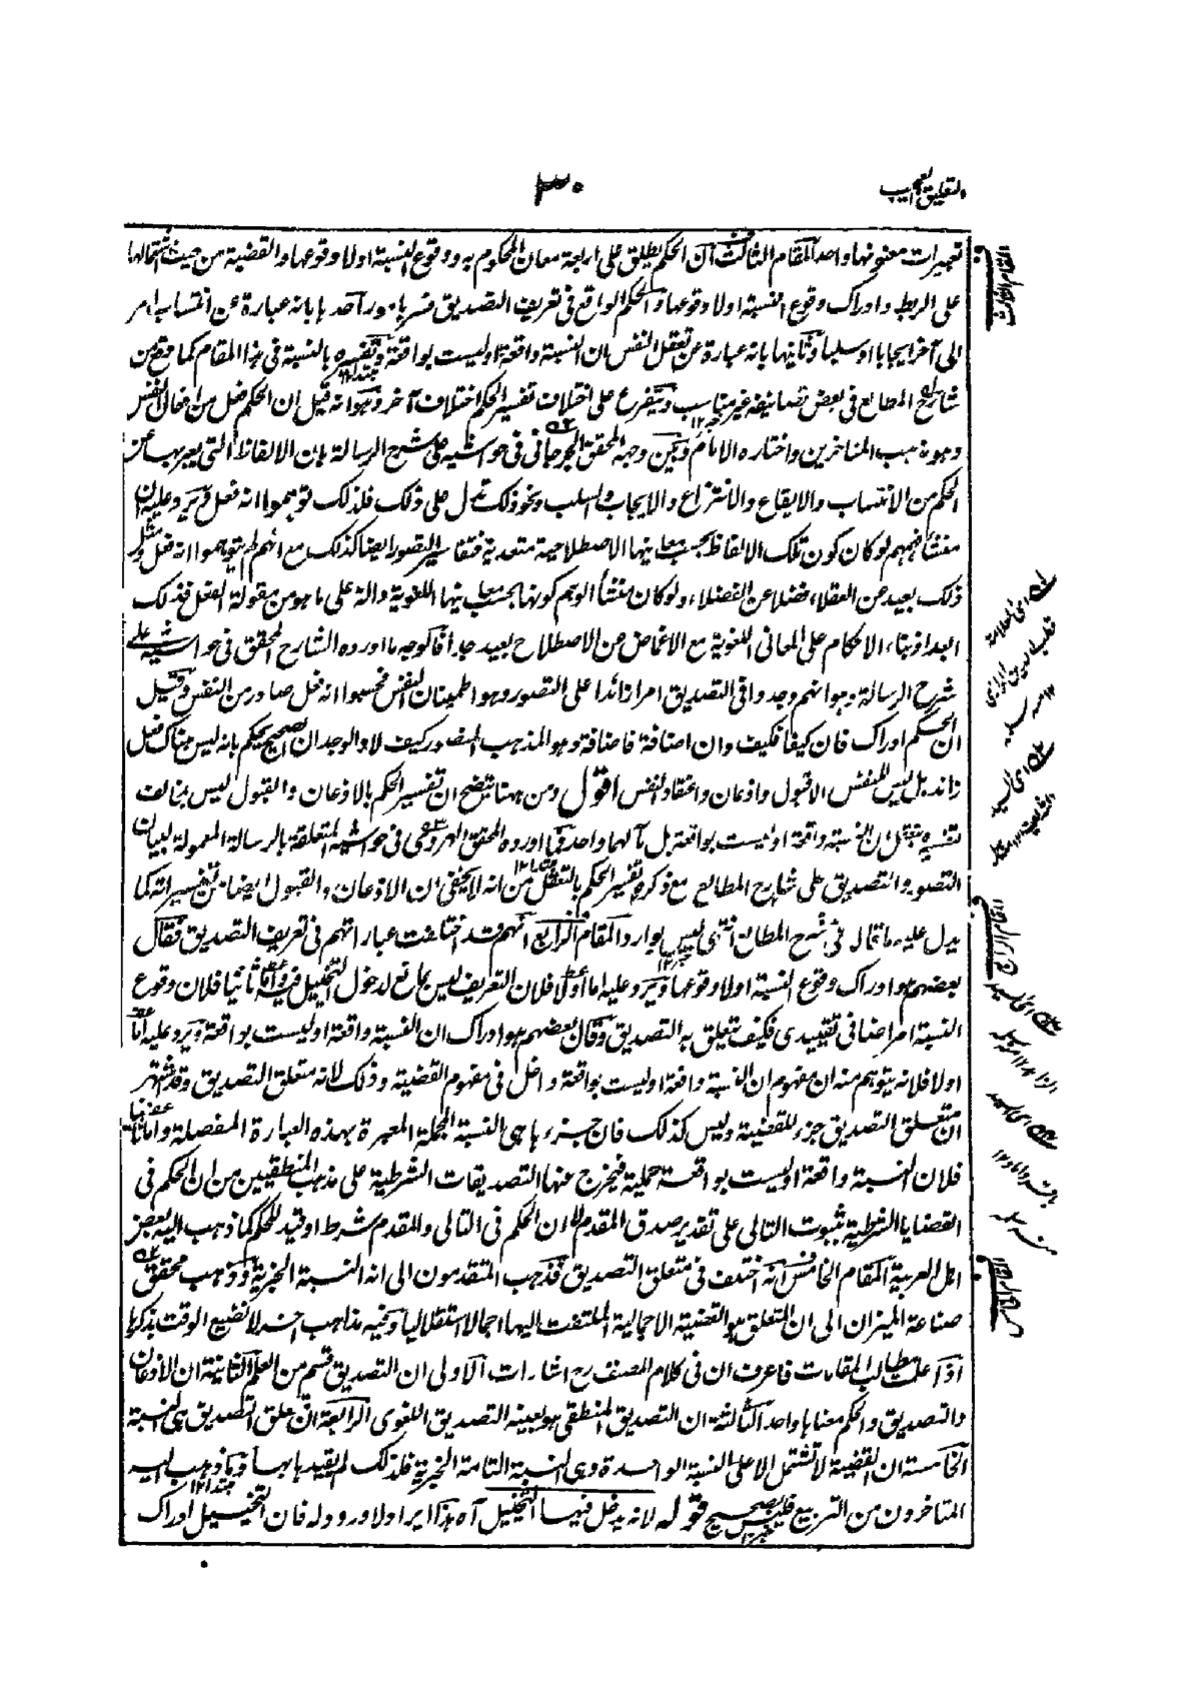 التعليق العجيب
٣٠
تعبيرات معنونها واحد المقام الثالث ان الحكم يطلق على اربعة معان المحكوم به ووقوع النسبة اولا وقوعها والقضية من حيث اشتمالها
على الربط وادراك وقوع النسبة اولا وقوعها والحكم الواقع فى تعريف التصديق فسر بامور آحدها بانه عبارة عن انتساب امر
الى آخر ايجابا او سلبا وثانيها بانه عبارة عن تعقل النفس ان النسبة واقعة او ليست بواقعة وتفسيره بالنسبة فى هذا المقام كما وقع من
شارح المطالع فى بعض تصانيفه غير مناسب ويتفرع على اختلاف تفسير الحكم اختلاف آخر وهو انه قيل ان الحكم فعل من افعال النفس
وهو مذهب المتاخرين واختاره الامام وبين وجهه المحقق الجرجانى فى حواشيه على شرح الرسالة بان الالفاظ التى يعبر بها عن
الحكم من الانتساب والايقاع والانتزاع والايجاب والسلب ونحو ذلك تدل على ذلك فلذلك توهموا انه فعل ويرد عليه ان
منشأ فهمهم لو كان كون تلك الالفاظ بحسب معانيها الاصطلاحية متعدية فتفاسير التصور ايضا كذلك مع انهم لم يتوهموا انه فعل ومثل
ذلك بعيد عن العقلاء فضلا عن الفضلاء ولو كان منشأ الوهم كونها بحسب معانيها اللغوية دالة على ما هو من مقولة الفعل فذلك
ابعد اذ بناء الاحكام على المعانى اللغوية مع الاغماض عن الاصطلاح بعيد جدا فالوجه ما اورده الشارح المحقق فى حواشيه على
شرح الرسالة وهو انهم وجدوا فى التصديق امرا زائدا على التصور وهو اطمينان النفس فحسبوا انه فعل صادر من النفس وقيل
ان الحكم ادراك فان كيفا فكيف وان اضافة فاضافة وهو المذهب المنصور كيف لا والوجدان الصحيح يحكم بانه ليس هناك فعل
زائد بل ليس للنفس الا قبول واذعان واعتقاد النفس اقول ومن ههنا يتضح ان تفسير الحكم بالاذعان والقبول ليس بمخالف
تفسيره بتعقل ان النسبة واقعة او ليست بواقعة بل مآلهما واحد فما اورده المحقق الهروى فى حواشيه المتعلقة بالرسالة المعمولة لبيان
التصور والتصديق على شارح المطالع مع ذكره تفسير الحكم بالتعقل من انه لا يخفى ان الاذعان والقبول ايضا من تفسيراته كما
يدل عليه ما قال فى شرح المطالع انتهى ليس بوارد المقام الرابع انهم قد اختلفت عباراتهم فى تعريف التصديق فقال
بعضهم هو ادراك وقوع النسبة اولا وقوعها ويرد عليه اما اولا فلان التعريف ليس بمانع لدخول التخييل فيه واما ثانيا فلان وقوع
النسبة امر اضافى تقييدى فكيف يتعلق به التصديق وقال بعضهم هو ادراك ان النسبة واقعة او ليست بواقعة ويرد عليه اما
اولا فلانه يتوهم منه ان مفهوم ان النسبة واقعة او ليست بواقعة داخل فى مفهوم القضية وذلك لانه متعلق التصديق وقد اشتهر
ان متعلق التصديق جزء للقضية وليس كذلك فان جزءها هى النسبة المجملة المعبرة بهذه العبارة المفصلة واما ثانيا
فلان النسبة واقعة او ليست بواقعة حملية فيخرج عنها التصديقات الشرطية على مذهب المنطقيين من ان الحكم فى
القضايا الشرطية بثبوت التالى على تقدير صدق المقدم لا ان الحكم فى التالى والمقدم شرط او قيد للحكم كما ذهب اليه بعض
اهل العربية المقام الخامس انه اختلف فى متعلق التصديق فذهب المتقدمون الى انه النسبة الخبرية وذهب محقق
صناعة الميزان الى ان المتعلق هو القضية الاجمالية الملتفت اليها اجمالا استقلاليا وفيه مذاهب اخر لا نضيع الوقت بذكرها
اذا علمت مطالب المقامات فاعرف ان فى كلام المصنف رح اشارات الاولى ان التصديق قسم من العلم الثانية ان الاذعان
والتصديق والحكم معناها واحد الثالثة ان التصديق المنطقى هو بعينه التصديق اللغوى الرابعة ان متعلق التصديق هى النسبة
الخامسة ان القضية لا تشتمل الا على النسبة الواحدة وهى النسبة التامة الخبرية فلذلك لم يقيدها بها وما ذهب اليه
المتاخرون من التربيع فليس بصحيح قوله لانه يدخل فيها التخييل آه هذا ايراد لا ورود له فان التخييل ادراك
المقام الثالث
اى العلامة قطب الدين الرازى
اى السيد الشريف
المقام الرابع
اى السيد
المقام الخامس